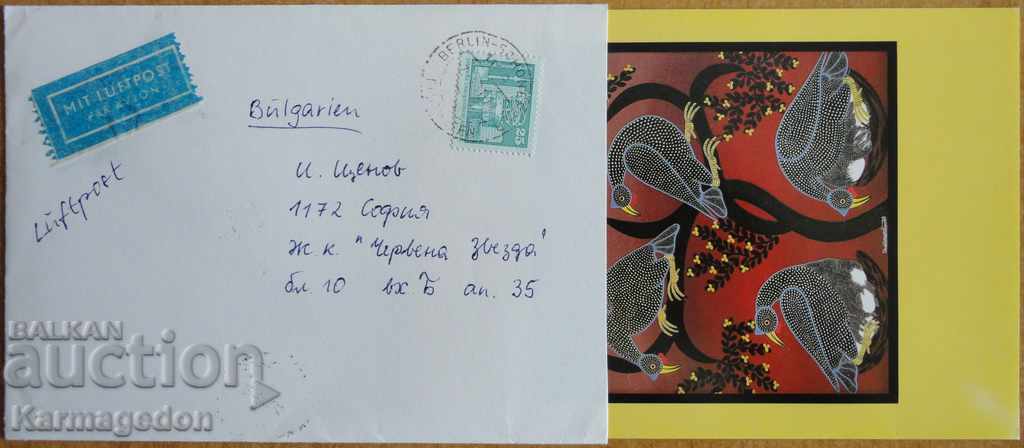 MIT LUFTPOST
PAR AVION
Luftpost
Bulgarien
BERLIN
25
И. Щенов
1172 София
ж.к. "Червена Звезда"
бл. 10 вх Б ап. 35
BALKAN
auction
Karmagedon